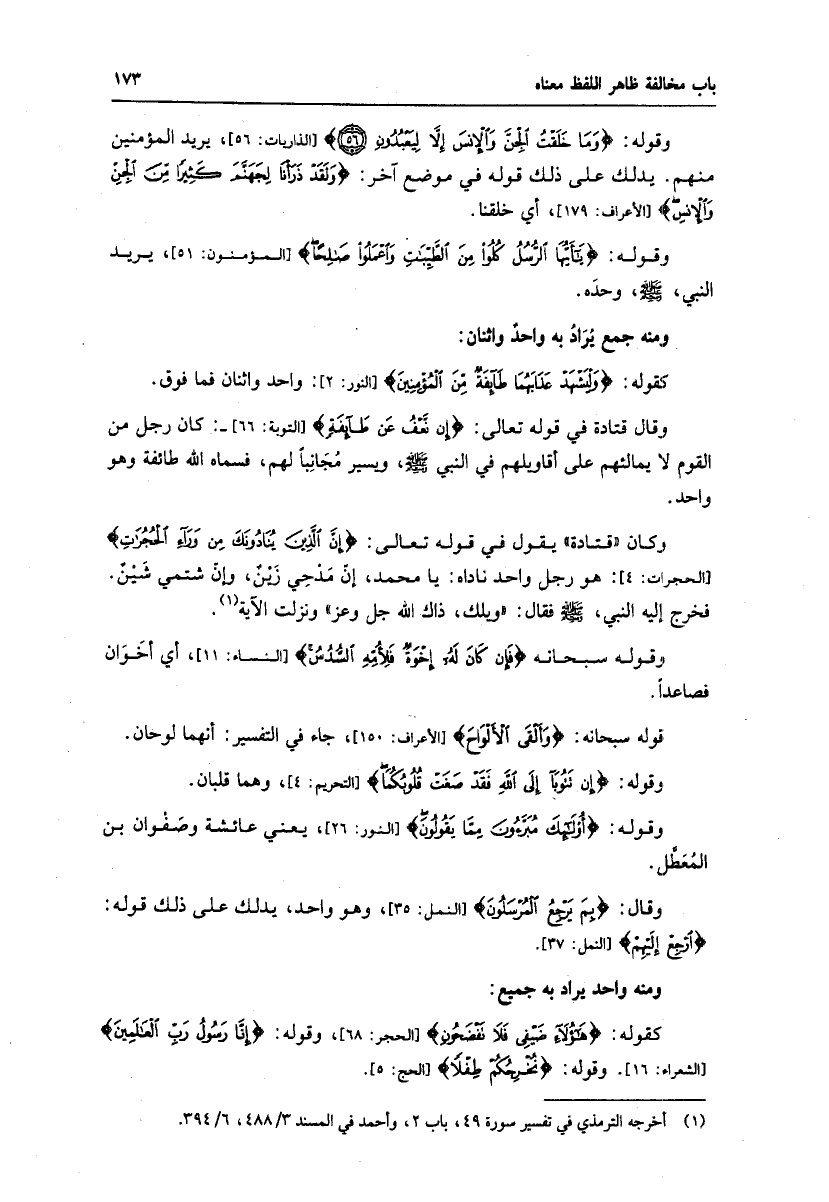 باب مخالفة ظاهر اللفظ معناه ١٧٣
وقوله: ﴿وَمَا خَلَقْتُ الْجِنَّ وَالْإِنسَ إِلَّا لِيَعْبُدُونِ ۝٥٦﴾ [الذاريات: ٥٦]، يريد المؤمنين
منهم. يدلك على ذلك قوله في موضع آخر: ﴿وَلَقَدْ ذَرَأْنَا لِجَهَنَّمَ كَثِيرًا مِّنَ الْجِنِّ
وَالْإِنسِ﴾ [الأعراف: ١٧٩]، أي خلقنا.
وقوله: ﴿يَٰٓأَيُّهَا الرُّسُلُ كُلُوا۟ مِنَ الطَّيِّبَٰتِ وَاعْمَلُوا۟ صَٰلِحًا﴾ [المؤمنون: ٥١]، يريد
النبي، ﷺ، وحدَه.
ومنه جمع يُرَادُ به واحدٌ واثنان:
كقوله: ﴿وَلْيَشْهَدْ عَذَابَهُمَا طَآئِفَةٌ مِّنَ الْمُؤْمِنِينَ﴾ [النور: ٢]: واحد واثنان فما فوق.
وقال قتادة في قوله تعالى: ﴿إِن نَّعْفُ عَن طَآئِفَةٍ﴾ [التوبة: ٦٦] ـ: كان رجل من
القوم لا يمالئهم على أقاويلهم في النبي ﷺ، ويسير مُجَانِباً لهم، فسماه الله طائفة وهو
واحد.
وكان «قتادة» يقول في قوله تعالى: ﴿إِنَّ الَّذِينَ يُنَادُونَكَ مِن وَرَآءِ الْحُجُرَٰتِ﴾
[الحجرات: ٤]: هو رجل واحد ناداه: يا محمد، إنّ مَدْحِي زَيْنٌ، وإنّ شتمي شَيْنٌ.
فخرج إليه النبي، ﷺ فقال: «ويلك، ذاك الله جل وعز» ونزلت الآية(١).
وقوله سبحانه ﴿فَإِن كَانَ لَهُۥٓ إِخْوَةٌ فَلِأُمِّهِ السُّدُسُ﴾ [النساء: ١١]، أي أخَوَان
فصاعداً.
قوله سبحانه: ﴿وَأَلْقَى الْأَلْوَاحَ﴾ [الأعراف: ١٥٠]، جاء في التفسير: أنهما لوحان.
وقوله: ﴿إِن تَتُوبَآ إِلَى اللَّهِ فَقَدْ صَغَتْ قُلُوبُكُمَا﴾ [التحريم: ٤]، وهما قلبان.
وقوله: ﴿أُو۟لَٰٓئِكَ مُبَرَّءُونَ مِمَّا يَقُولُونَ﴾ [النور: ٢٦]، يعني عائشة وصَفْوان بن
المُعَطَّل.
وقال: ﴿بِمَ يَرْجِعُ الْمُرْسَلُونَ﴾ [النمل: ٣٥]، وهو واحد، يدلك على ذلك قوله:
﴿ارْجِعْ إِلَيْهِمْ﴾ [النمل: ٣٧].
ومنه واحد يراد به جميع:
كقوله: ﴿هَٰٓؤُلَآءِ ضَيْفِى فَلَا تَفْضَحُونِ﴾ [الحجر: ٦٨]، وقوله: ﴿إِنَّا رَسُولُ رَبِّ الْعَٰلَمِينَ﴾
[الشعراء: ١٦]. وقوله: ﴿نُخْرِجُكُمْ طِفْلًا﴾ [الحج: ٥].
(١) أخرجه الترمذي في تفسير سورة ٤٩، باب ٢، وأحمد في المسند ٣/٤٨٨، ٦/٣٩٤.